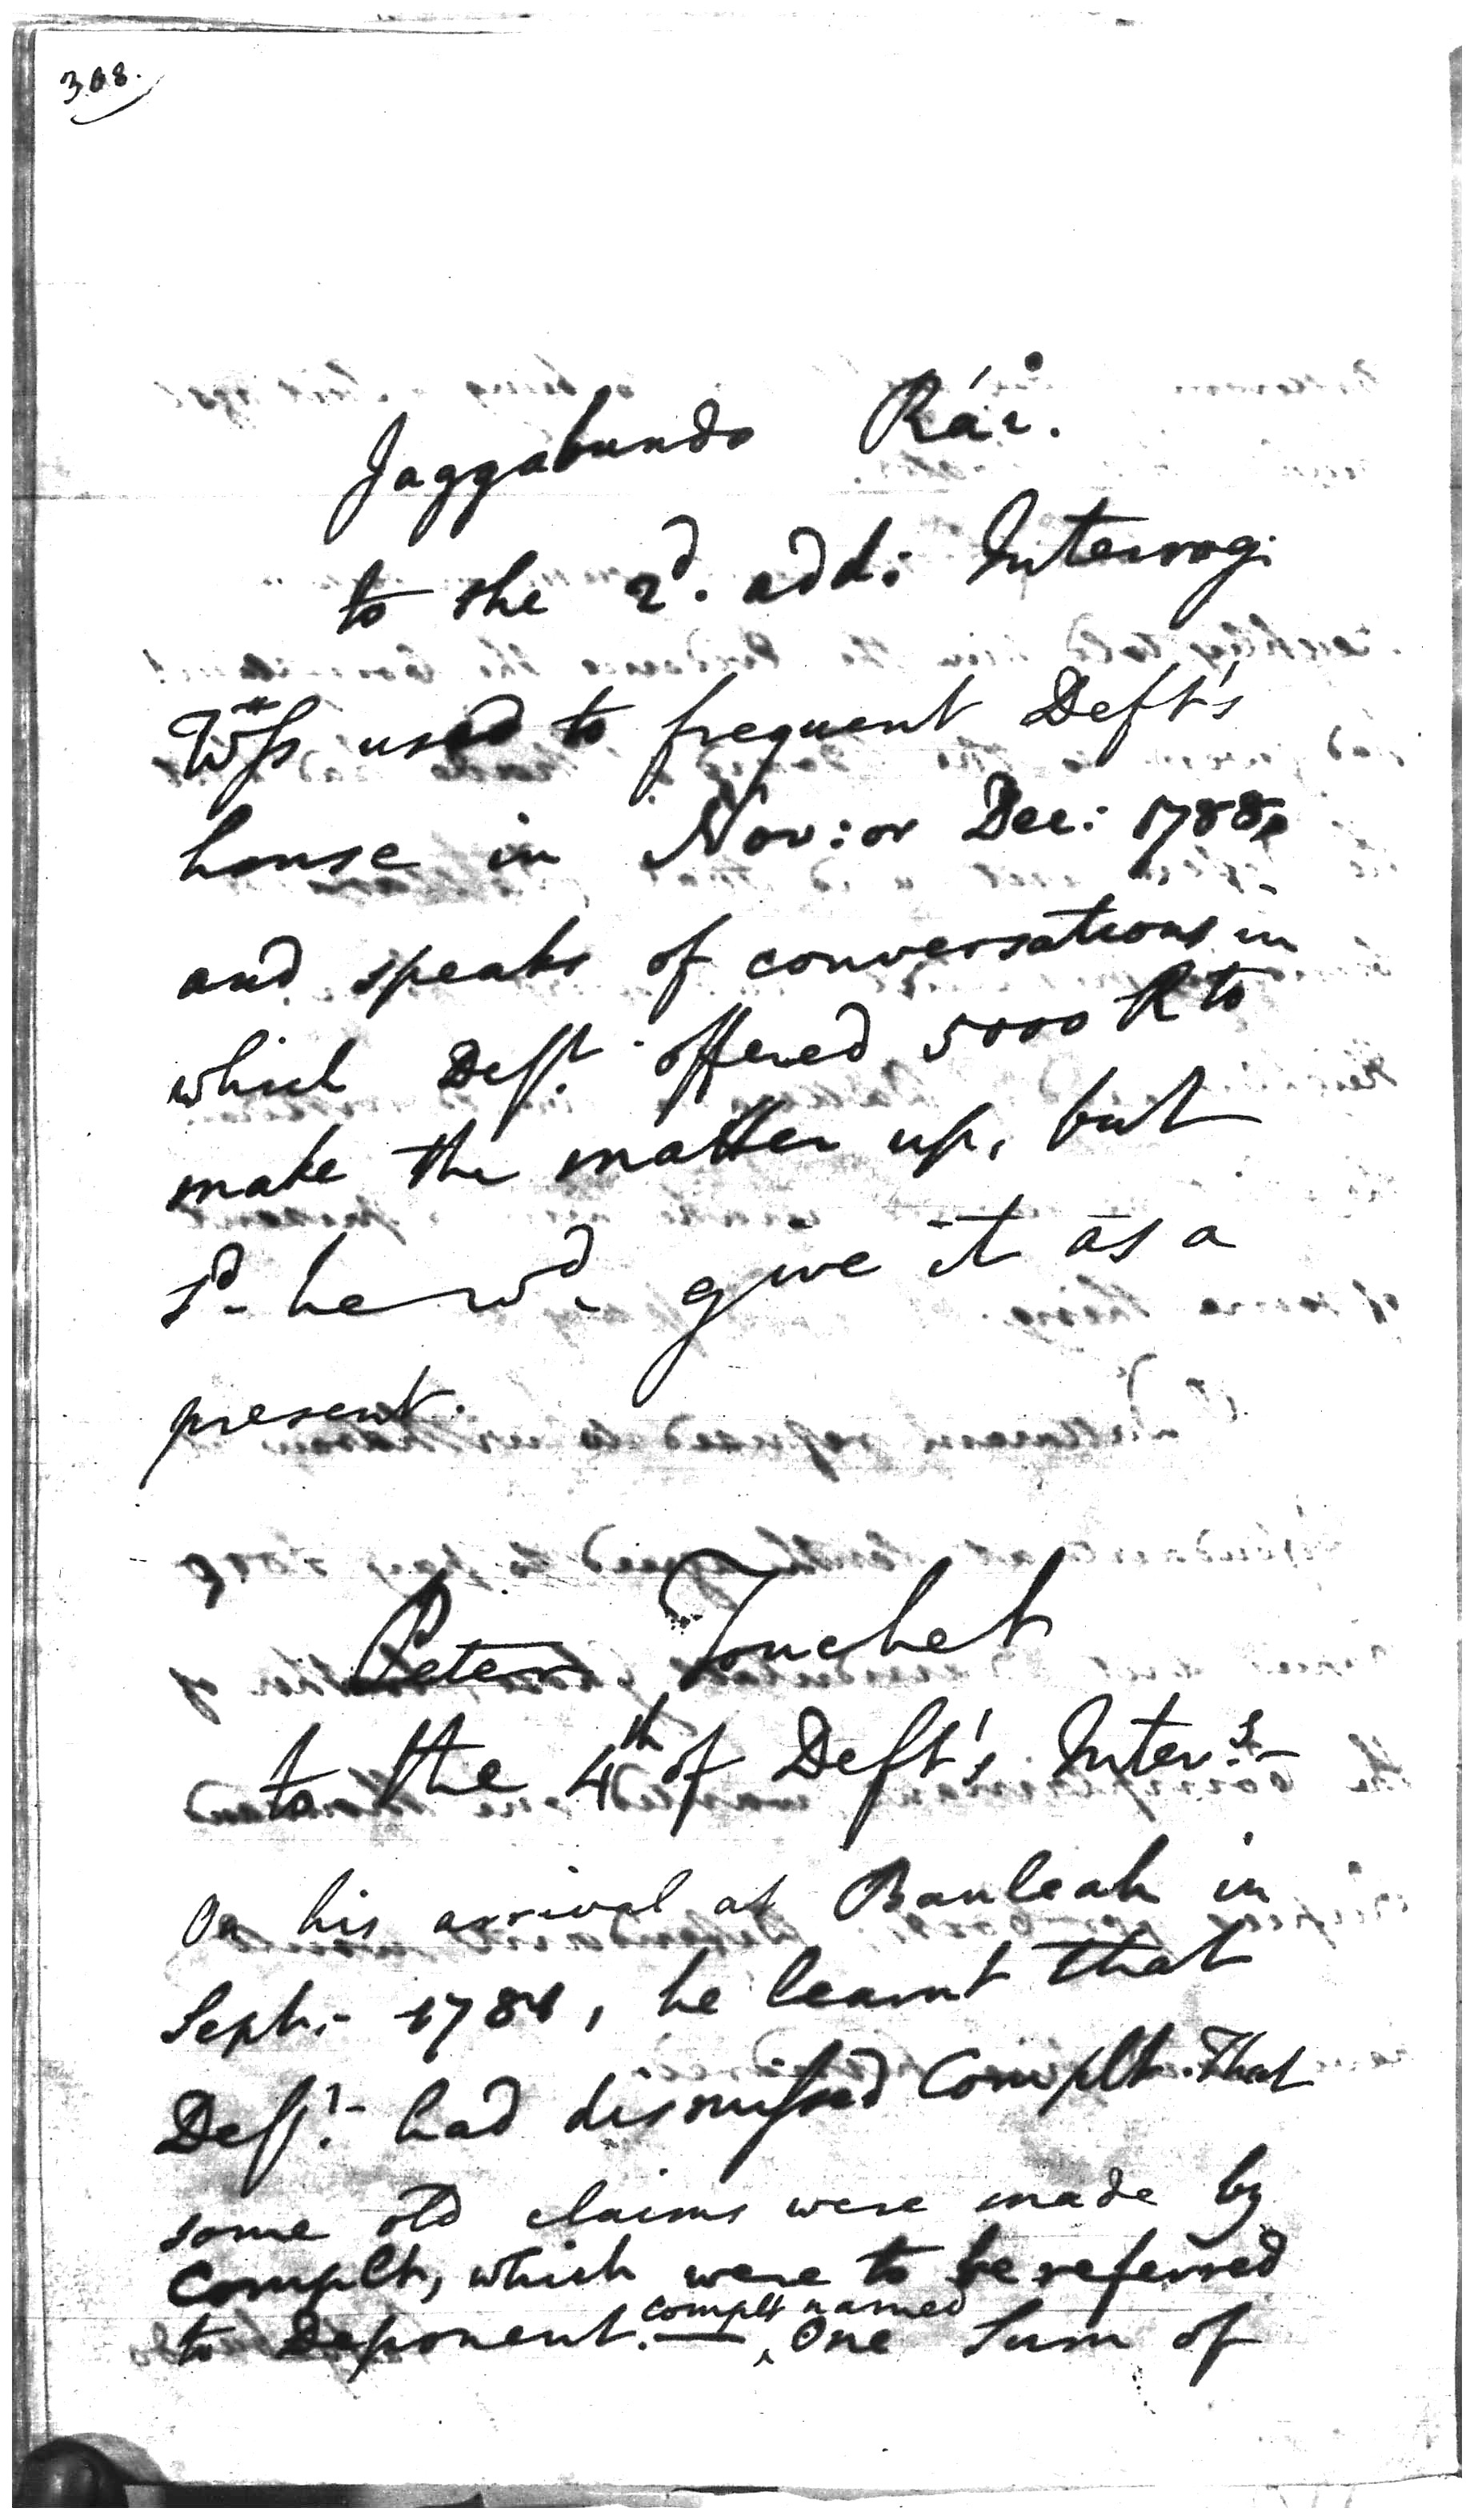 308.
Jaggabundo Rái.
to the 2d. add: Interrog:
Wss used to frequent Deft's
house in Nov: or Dec: 1788,
and speaks of conversations in
which Deft. offered 5000 R to
make the matter up, but
sd. he wd. give it as a
present.
Peter Touchet
to the 4th of Deft's Inter:s
On his arrival at Bauleah in
Sept:- 1781, he learnt that
Deft:- had dismissed Complt. That
some old claims were made by
Complt, which were to be referred
to Deponent. — complt named One Sum of